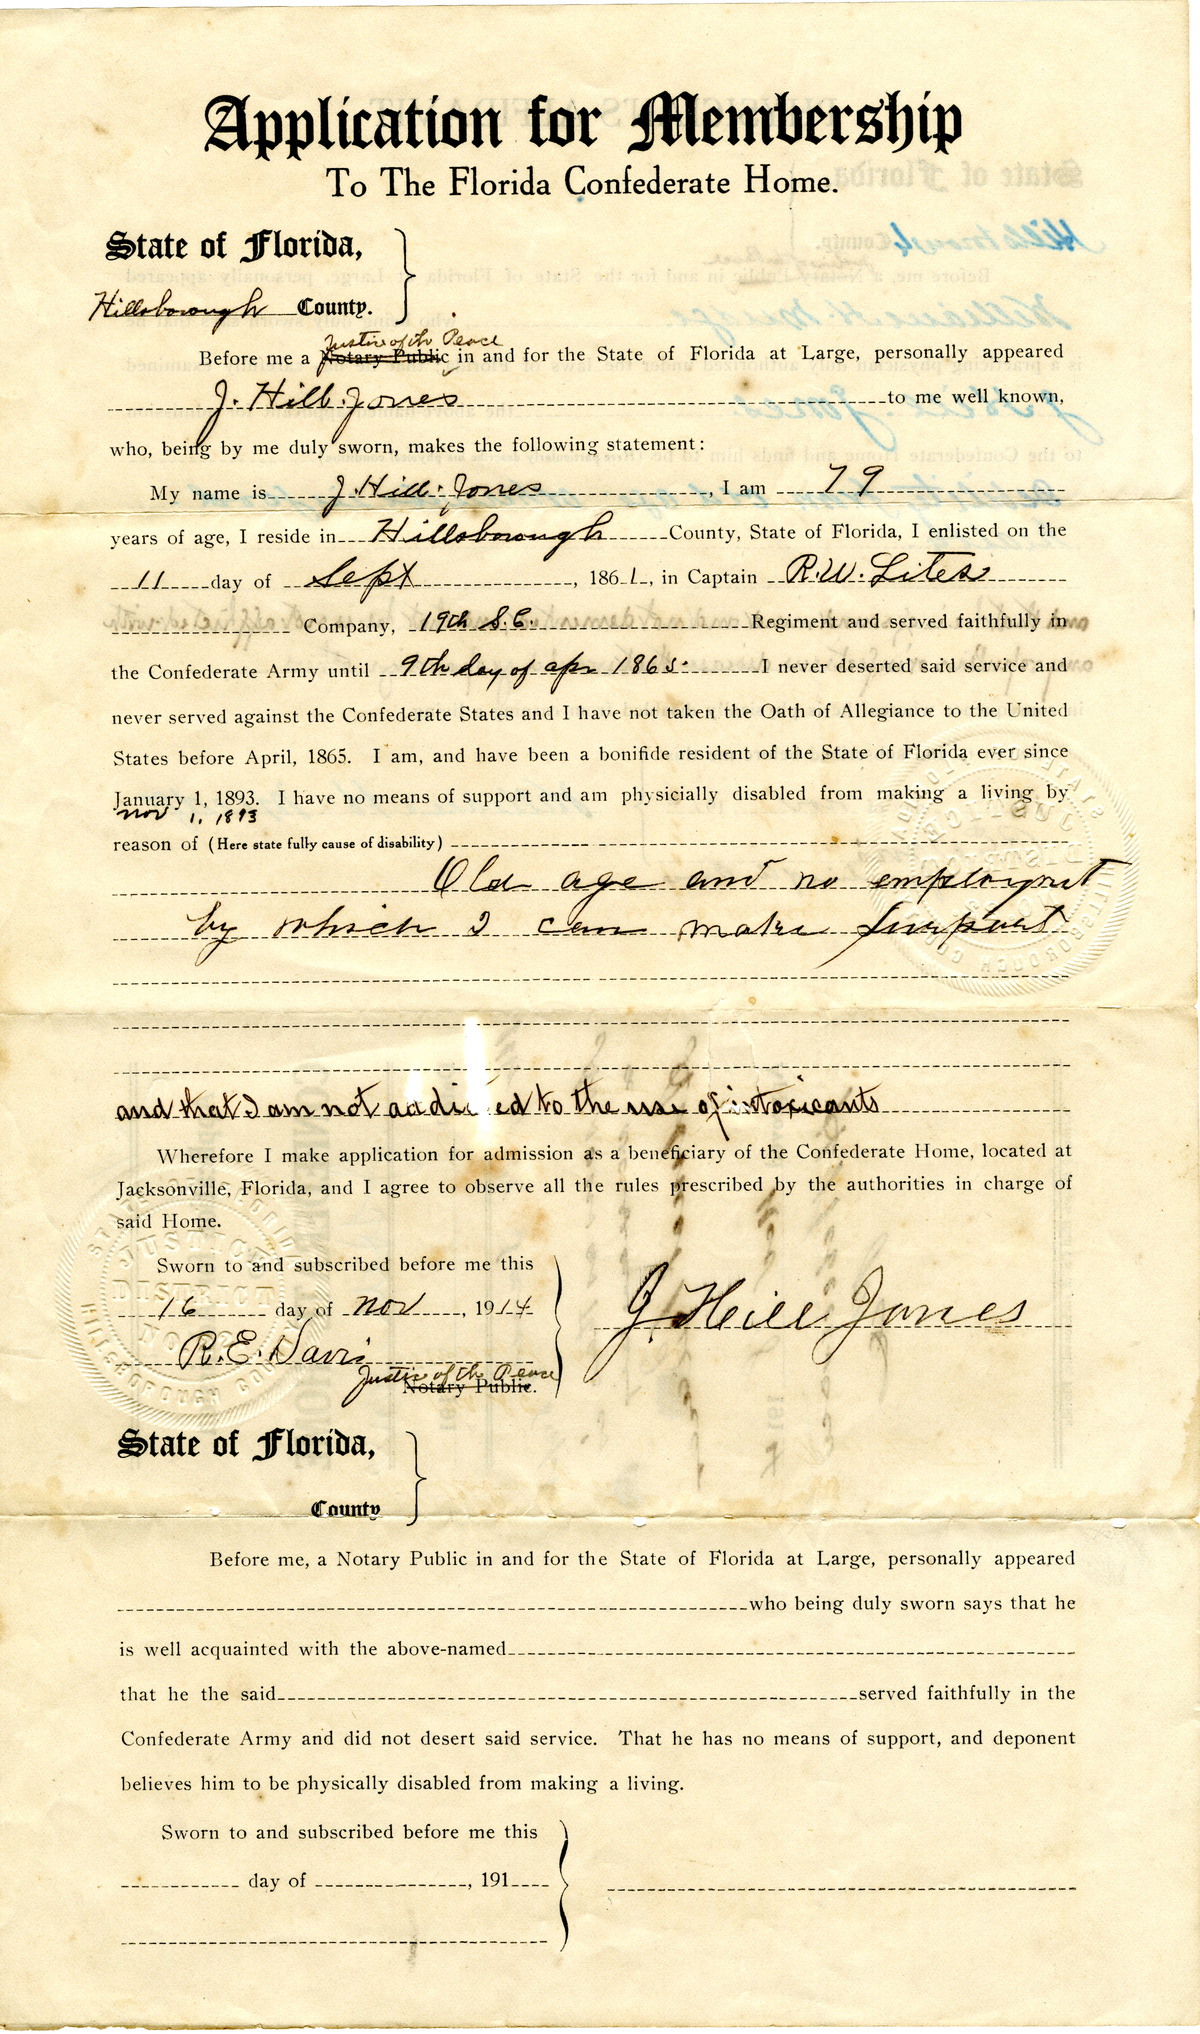 Application for Membership
To The Florida Confederate Home.
State of Florida,
Hillsborough County.
Justice of the Peace
Before me a Notary Public in and for the State of Florida at Large, personally appeared
J. Hill Jones to me well known,
who, being by me duly sworn, makes the following statement:
My name is J. Hill Jones, I am 79
years of age, I reside in Hillsborough County, State of Florida, I enlisted on the
11 day of Sept, 1861, in Captain R.W. Lites
Company, 19th S.C. Regiment and served faithfully in
the Confederate Army until 9th day of apr 1865. I never deserted said service and
never served against the Confederate States and I have not taken the Oath of Allegiance to the United
States before April, 1865. I am, and have been a bonifide resident of the State of Florida ever since
January 1, 1893. I have no means of support and am physicially disabled from making a living by
nov 1, 1893
reason of (Here state fully cause of disability)
Old age and no employmt
by which I can make support
and that I am not addicted to the use of intoxicants
Wherefore I make application for admission as a beneficiary of the Confederate Home, located at
Jacksonville, Florida, and I agree to observe all the rules prescribed by the authorities in charge of
said Home.
Sworn to and subscribed before me this
16 day of nov, 1914
J. Hill Jones
R. E. Davis
Justice of the Peace
Notary Public.
State of Florida,
County
Before me, a Notary Public in and for the State of Florida at Large, personally appeared
who being duly sworn says that he
is well acquainted with the above-named
that he the said served faithfully in the
Confederate Army and did not desert said service. That he has no means of support, and deponent
believes him to be physically disabled from making a living.
Sworn to and subscribed before me this
day of , 191